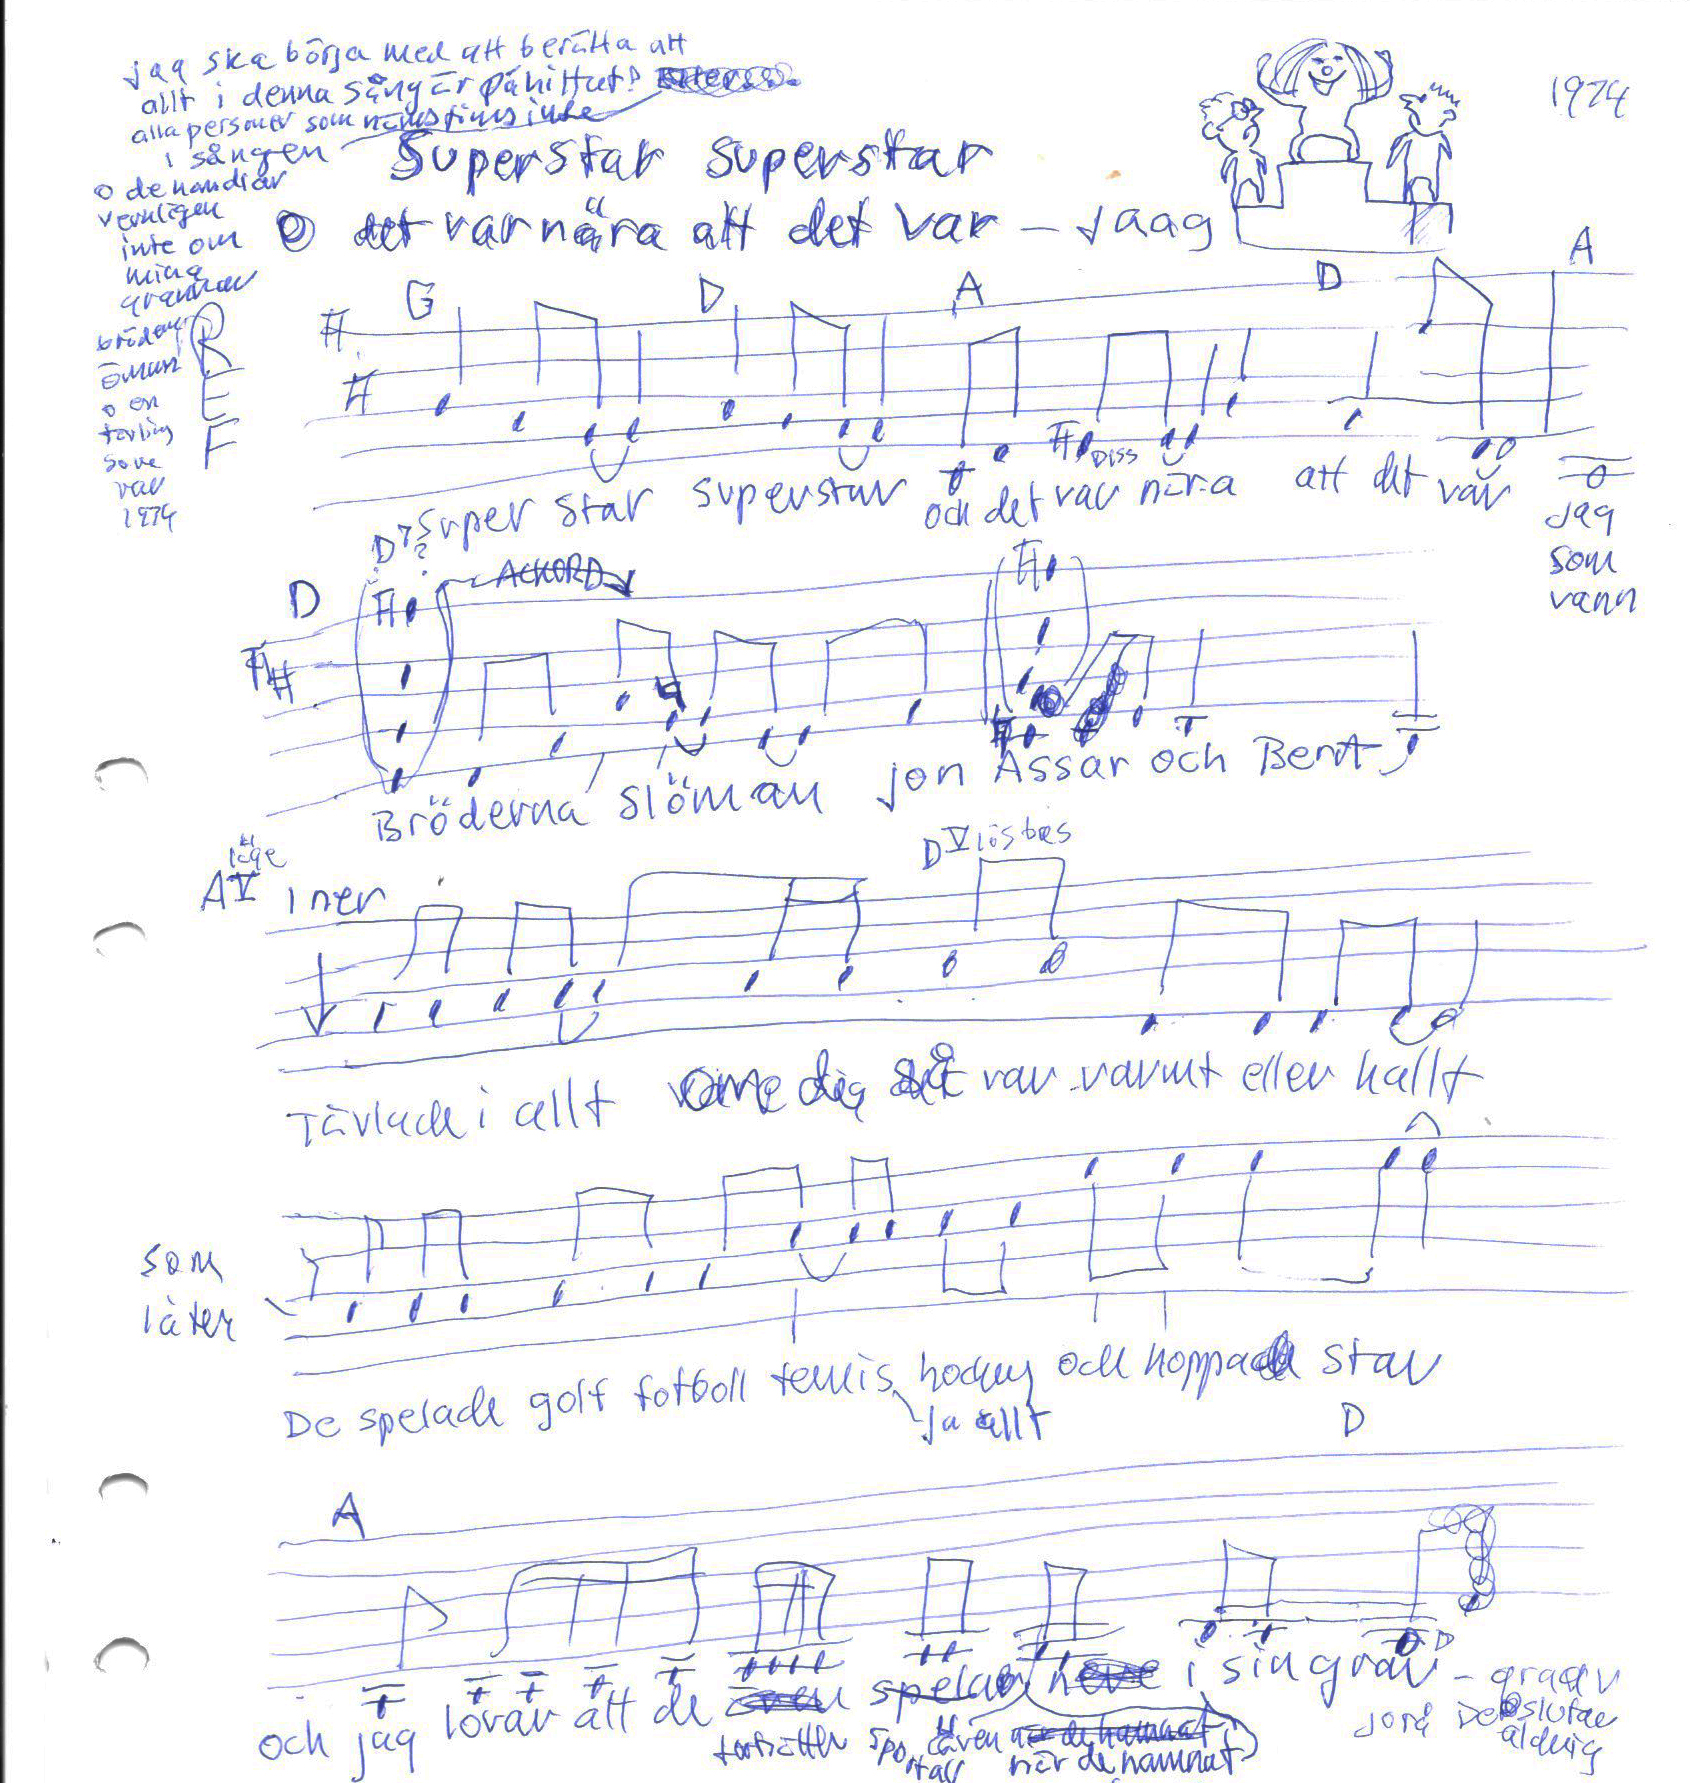 jag ska börja med att berätta att
allt i denna sång är påhittat!
alla personer som nämns finns inte
i sången
o de handlar
verkligen
inte om
mina
grannar
bröderna
öman
o en
tävling
som
var
1974
1974
Superstar superstar
o det var nära att det var – jaag
REF
G D A D A
DISS
Super star superstar och det var nära att det var jag
som
vann
D7?
D ACKORD
Bröderna slöman jon Assar och Bernt
läge
A V 1 ner
D V lösbas
Tävlade i allt om det var varmt eller kallt
som
låter
De spelade golf fotboll tennis hockey och hoppade stav
ja allt
D
A
och jag lovar att de även spelar i sin grav – graav
fortsätter sporta även när de hamnat
jorå De slutar
aldrig